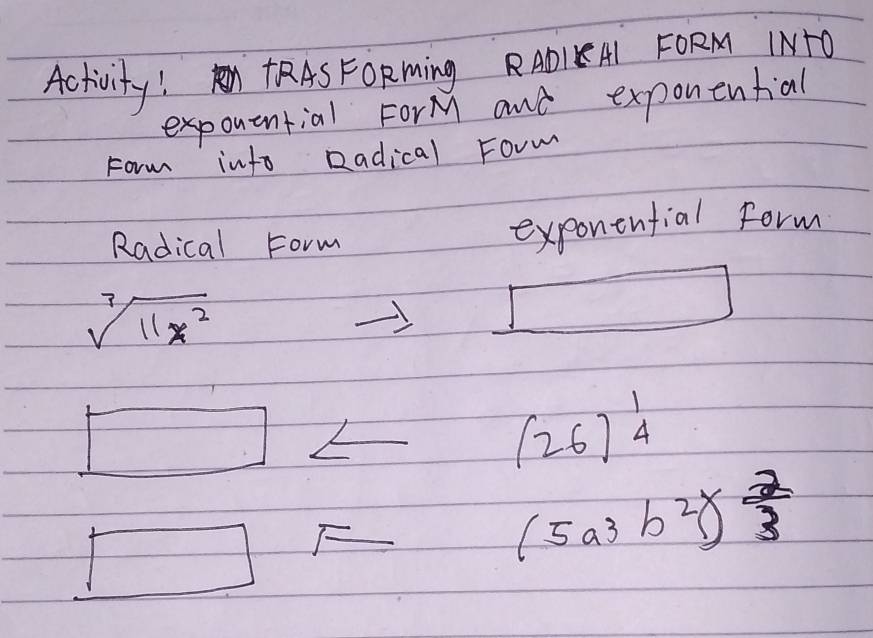 Activity! TRASFORMing RADICAl FORM INTO
exponential ForM and exponential
Form into Radical Form
Radical Form exponential Form
∛11x² →
← (26)^1/4
← (5a3 b²)^2/3